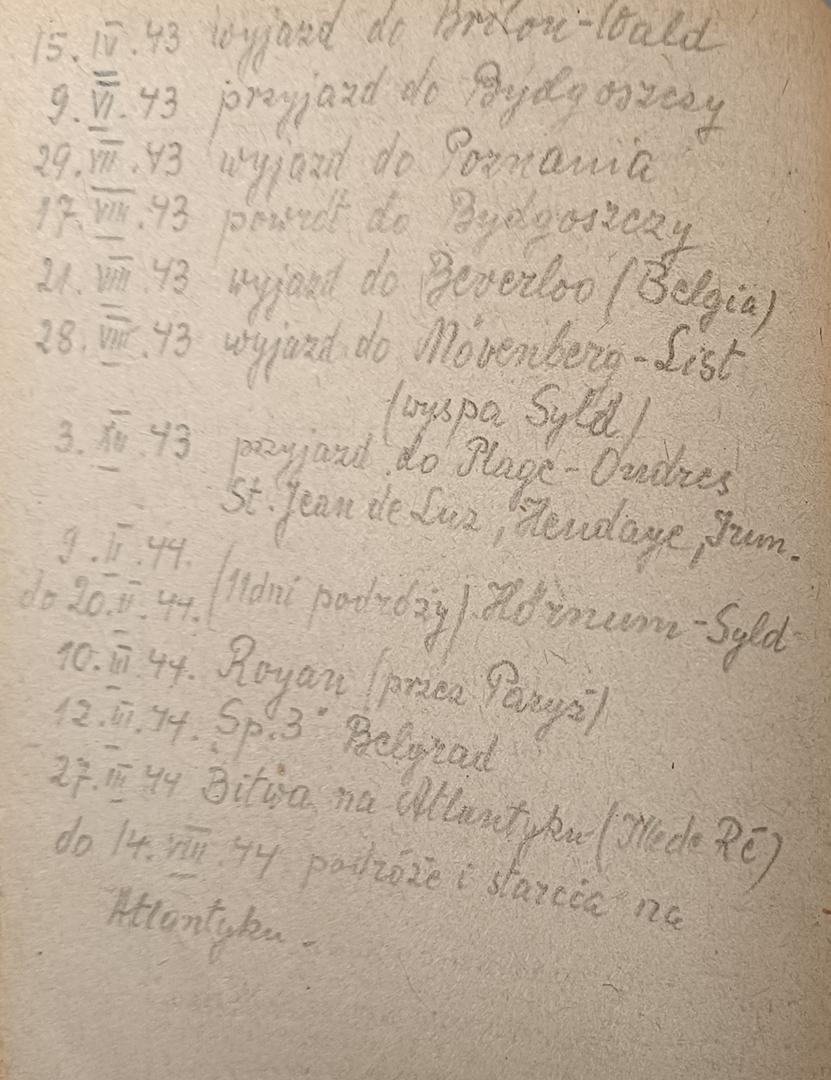 15. IV. 43 wyjazd do Brilon-Wald
9. VI. 43 przyjazd do Bydgoszczy
29. VII. 43 wyjazd do Poznania
17. VIII. 43 powrót do Bydgoszczy
21. VIII. 43 wyjazd do Beverloo (Belgia)
28. VIII. 43 wyjazd do Mövenberg-List
(wyspa Syld)
3. XII. 43 przyjazd do Plage-Ondres
St. Jean de Luz, Hendaye, Irun.
9. II. 44.
do 20. II. 44. (11 dni podróży) Hörnum-Syld
10. III. 44. Royan (przez Paryż)
12. III. 44. Sp. 3" Belgrad
27. III 44 Bitwa na Atlantyku (Ille de Ré)
do 14. VIII. 44 podróże i starcia na
Atlantyku.